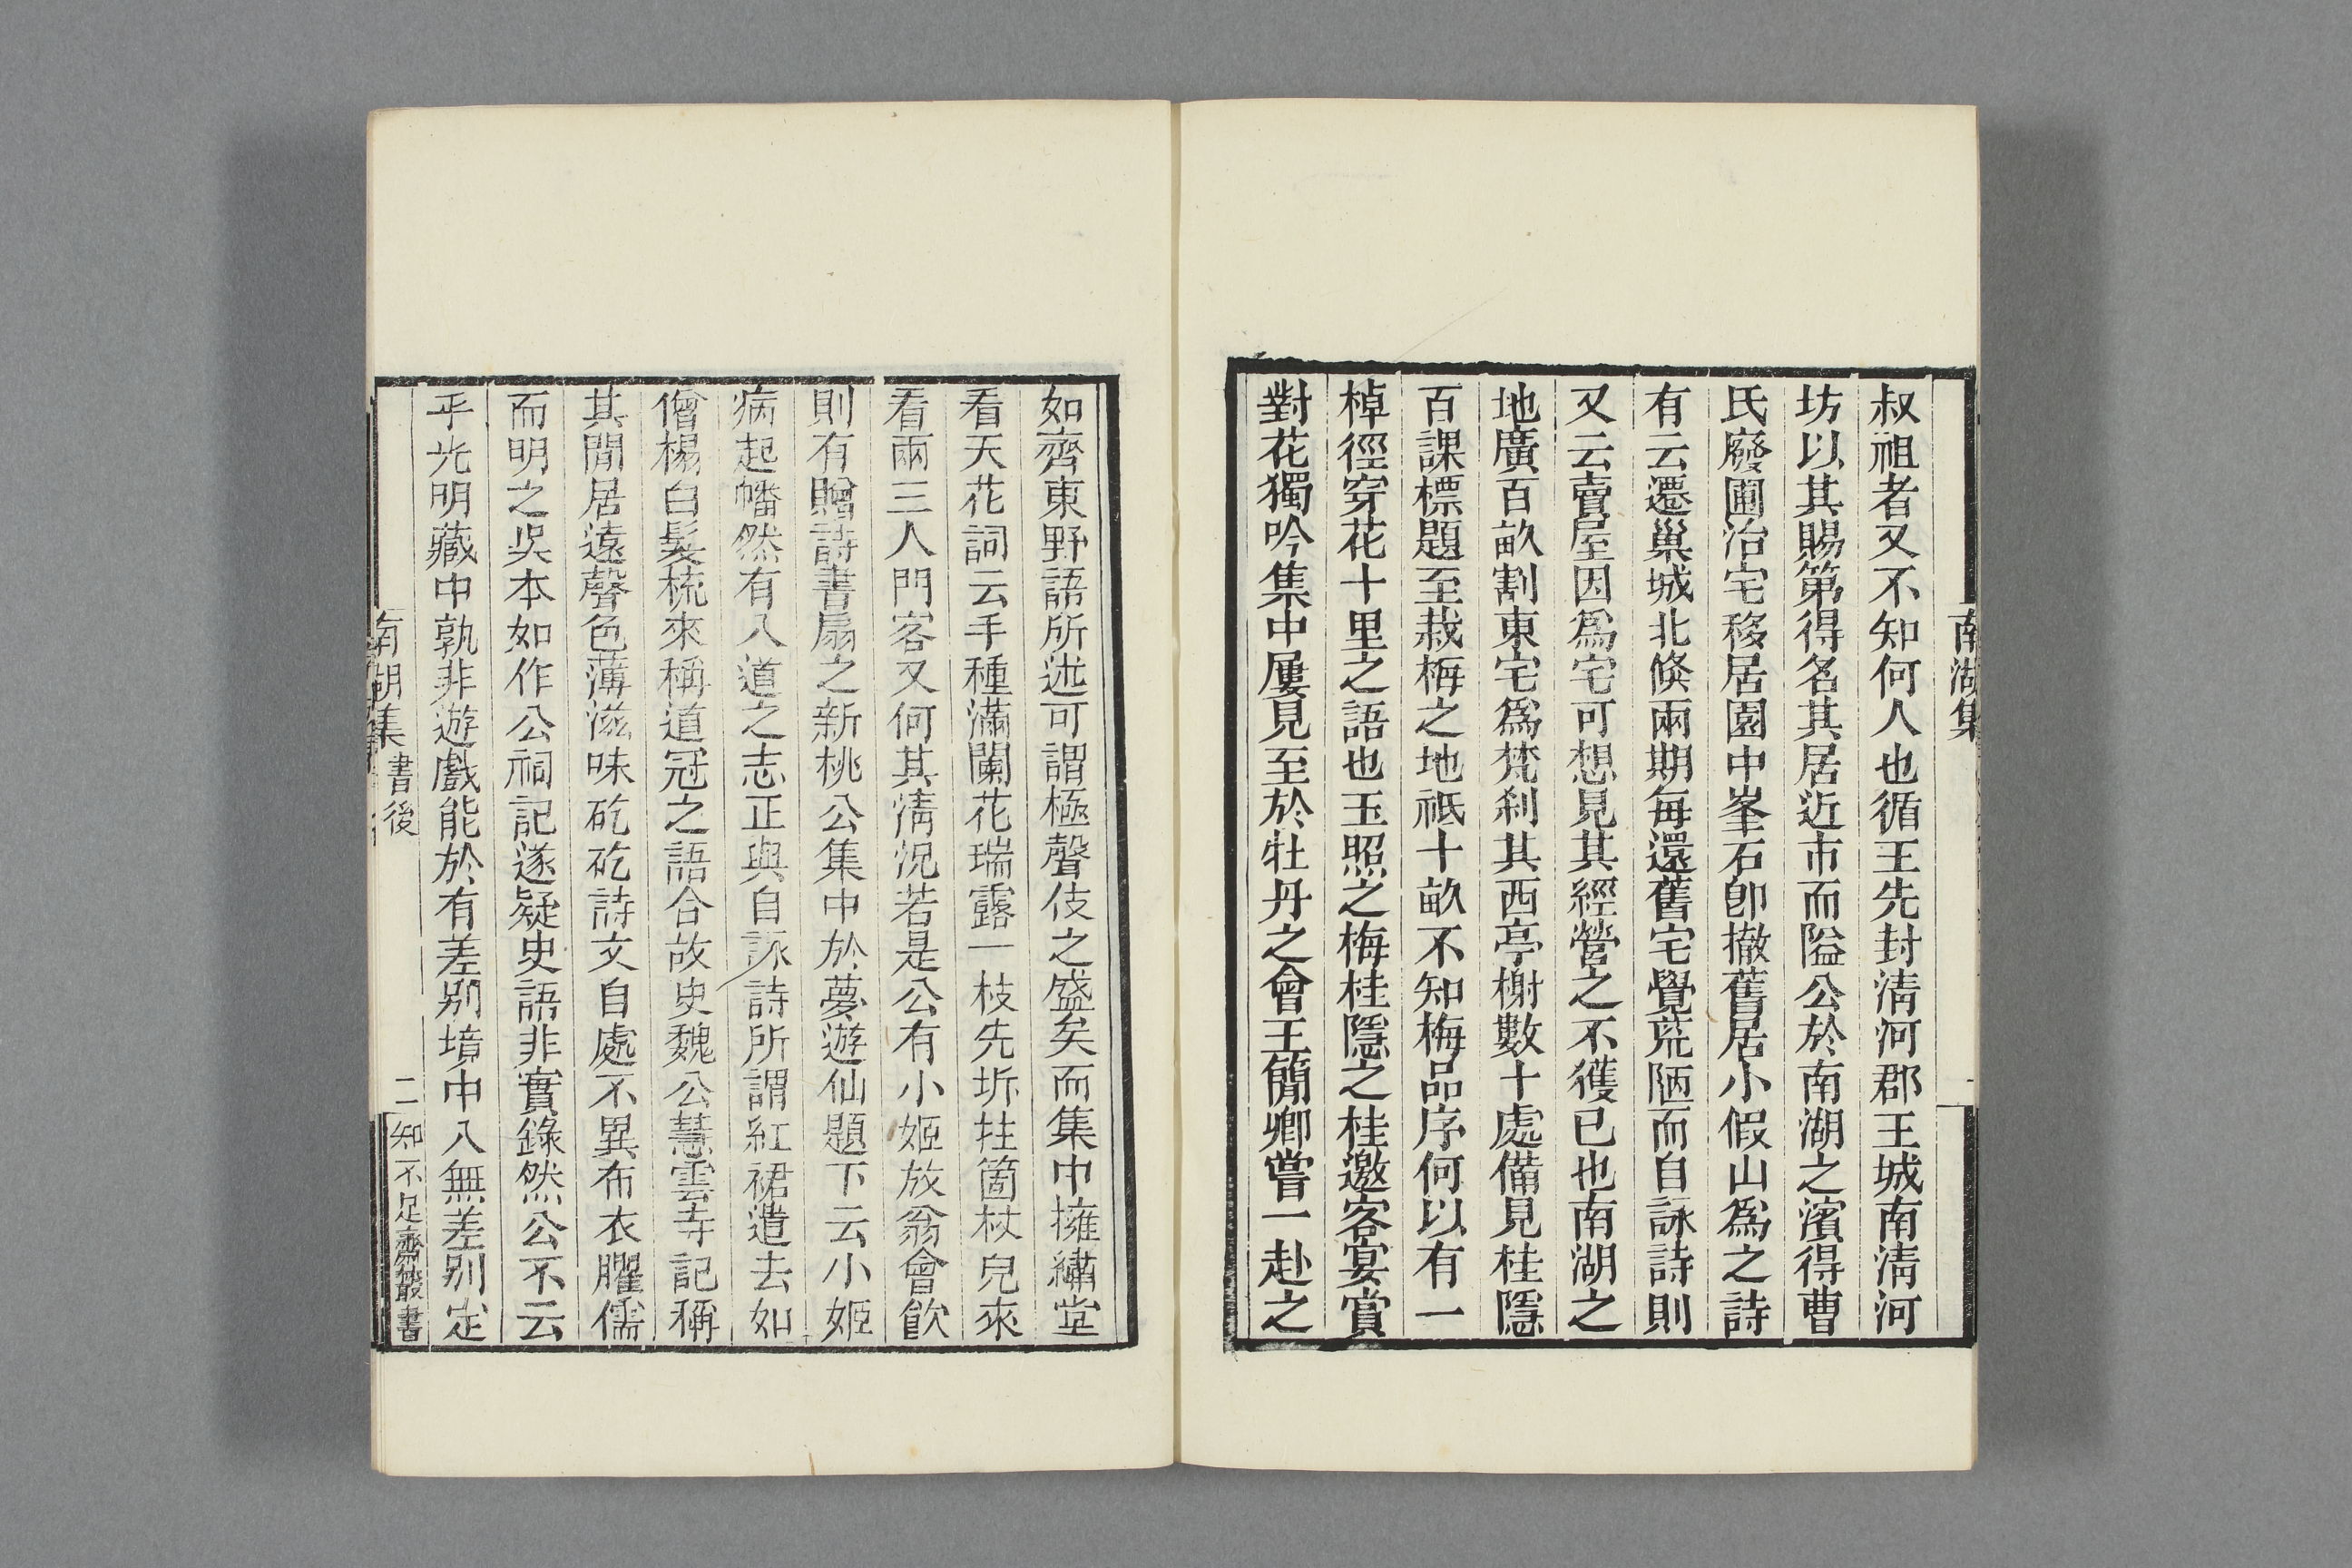 南湖集
叔祖者又不知何人也循王先封清河郡王城南清河
坊以其賜第得名其居近市而隘公於南湖之濱得曹
氏廢圃治宅移居園中峯石卽撤舊居小假山爲之詩
有云遷巢城北倐兩期每還舊宅覺荒陋而自詠詩則
又云賣屋因爲宅可想見其經營之不獲已也南湖之
地廣百畝割東宅爲梵刹其西亭榭數十處備見桂隱
百課標題至栽梅之地祗十畝不知梅品序何以有一
棹徑穿花十里之語也玉照之梅桂隱之桂邀客宴賞
對花獨吟集中屢見至於牡丹之會王簡卿嘗一赴之
如齊東野語所述可謂極聲伎之盛矣而集中擁繡堂
看天花詞云手種滿闌花瑞露一枝先坼拄箇杖兒來
看兩三人門客又何其清況若是公有小姬放翁會飮
則有贈詩書扇之新桃公集中於夢遊仙題下云小姬
病起幡然有入道之志正與自詠詩所謂紅裙遣去如
僧榻白髮梳來稱道冠之語合故史魏公慧雲寺記稱
其閒居遠聲色薄滋味矻矻詩文自處不異布衣臞儒
而明之吳本如作公祠記遂疑史語非實錄然公不云
乎光明藏中孰非遊戲能於有差别境中入無差别定
南湖集 書後 二 知不足齋叢書